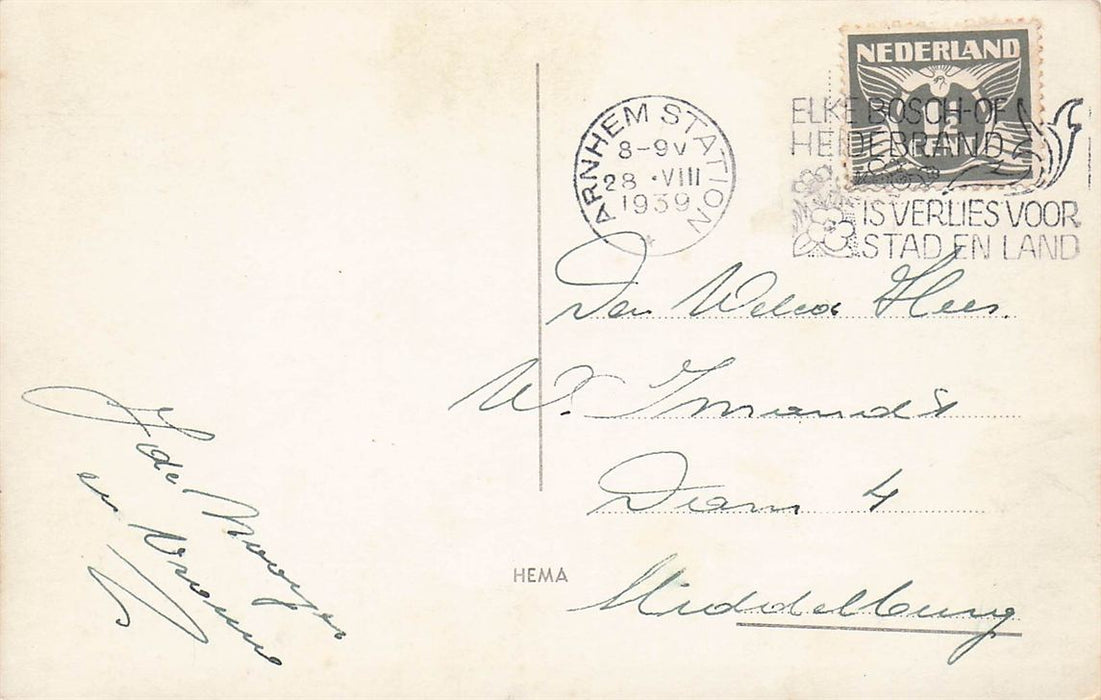 NEDERLAND
1½
CENT
ARNHEM STATION
8-9V
28 ·VIII
1939
ELKE BOSCH-OF
HEIDEBRAND
IS VERLIES VOOR
STAD EN LAND
Den Heer
W. Imands
Dam 4
Middelburg
J de Nooijer
en Vrouw
HEMA